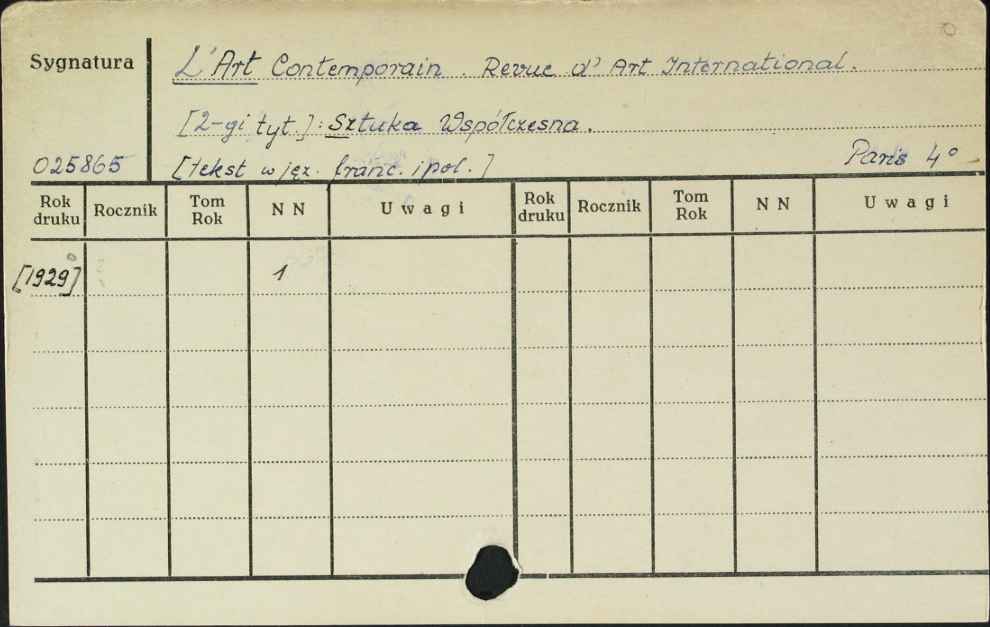 Sygnatura L'Art Contemporain. Revue d'Art International.
[2-gi tyt.]: Sztuka Współczesna.
025865 [tekst w jęz. franc. i pol.] Paris 4°
Rok druku Rocznik Tom Rok NN Uwagi Rok druku Rocznik Tom Rok NN Uwagi
[1929] 1